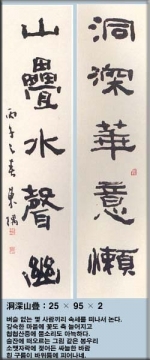 洞深華意懶
山疊水聲幽
洞深山疊 : 25 × 95 × 2
벼슬 없는 몇 사람끼리 속세를 떠나서 논다.
깊숙한 마을에 꽃도 축 늘어지고
첩첩산중에 물소리도 아늑하다.
술잔에 떠오르는 그림 같은 봉우리
소맷자락에 젖어든 싸늘한 바람
흰 구름이 바위틈에 피어나네,